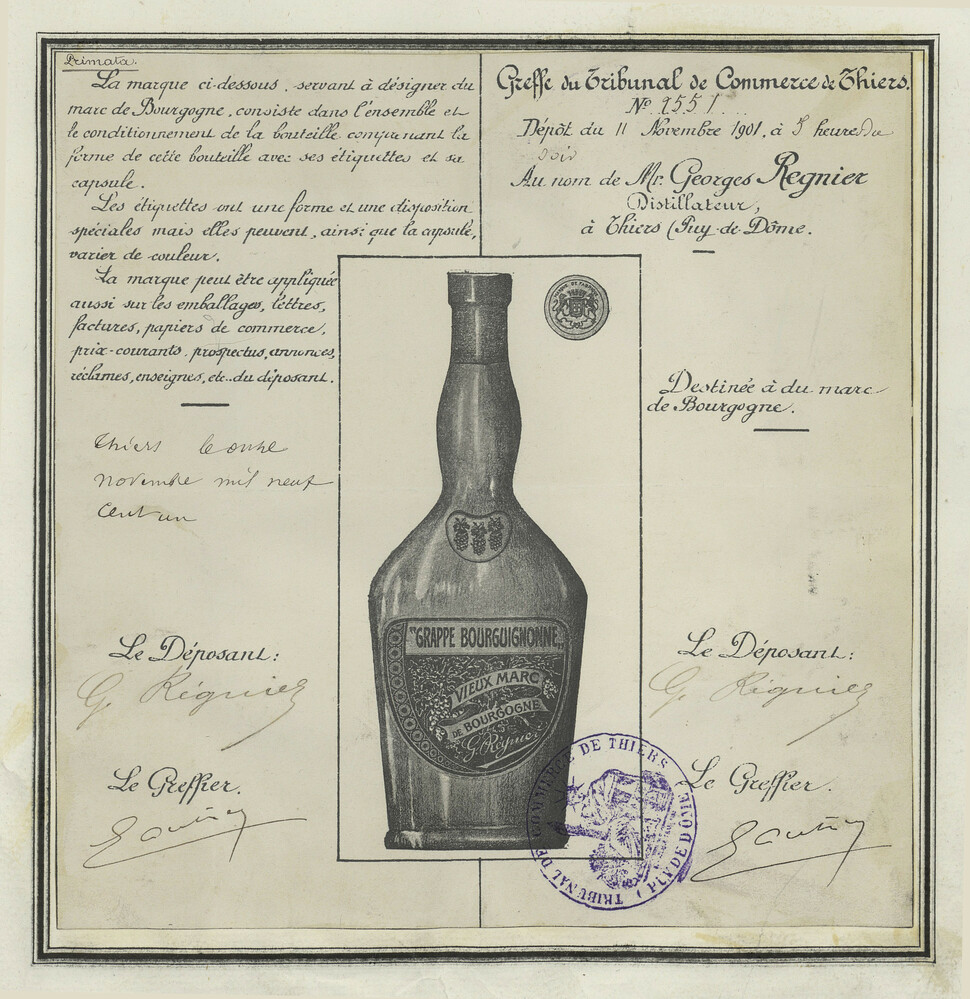 Primata.
La marque ci-dessous, servant à désigner du
marc de Bourgogne, consiste dans l'ensemble et
le conditionnement de la bouteille comprenant la
forme de cette bouteille avec ses étiquettes et sa
capsule.
Les étiquettes ont une forme et une disposition
spéciales mais elles peuvent, ainsi que la capsule,
varier de couleur.
La marque peut être appliquée
aussi sur les emballages, lettres,
factures, papiers de commerce,
prix-courants, prospectus, annonces,
réclames, enseignes, etc. du déposant.
Thiers le onze
novembre mil neuf
cent un
Le Déposant:
G. Régnier
Le Greffier.
Greffe du Tribunal de Commerce de Thiers.
No 1551
Dépôt du 11 Novembre 1901, à 5 heures du
soir
Au nom de Mr. Georges Regnier
Distillateur,
à Thiers (Puy-de-Dôme.
Destinée à du marc
de Bourgogne.
"GRAPPE BOURGUIGNONNE"
VIEUX MARC
DE BOURGOGNE
G. Régnier
Le Déposant:
G. Régnier
Le Greffier.
TRIBUNAL DE COMMERCE DE THIERS
(PUY DE DOME)